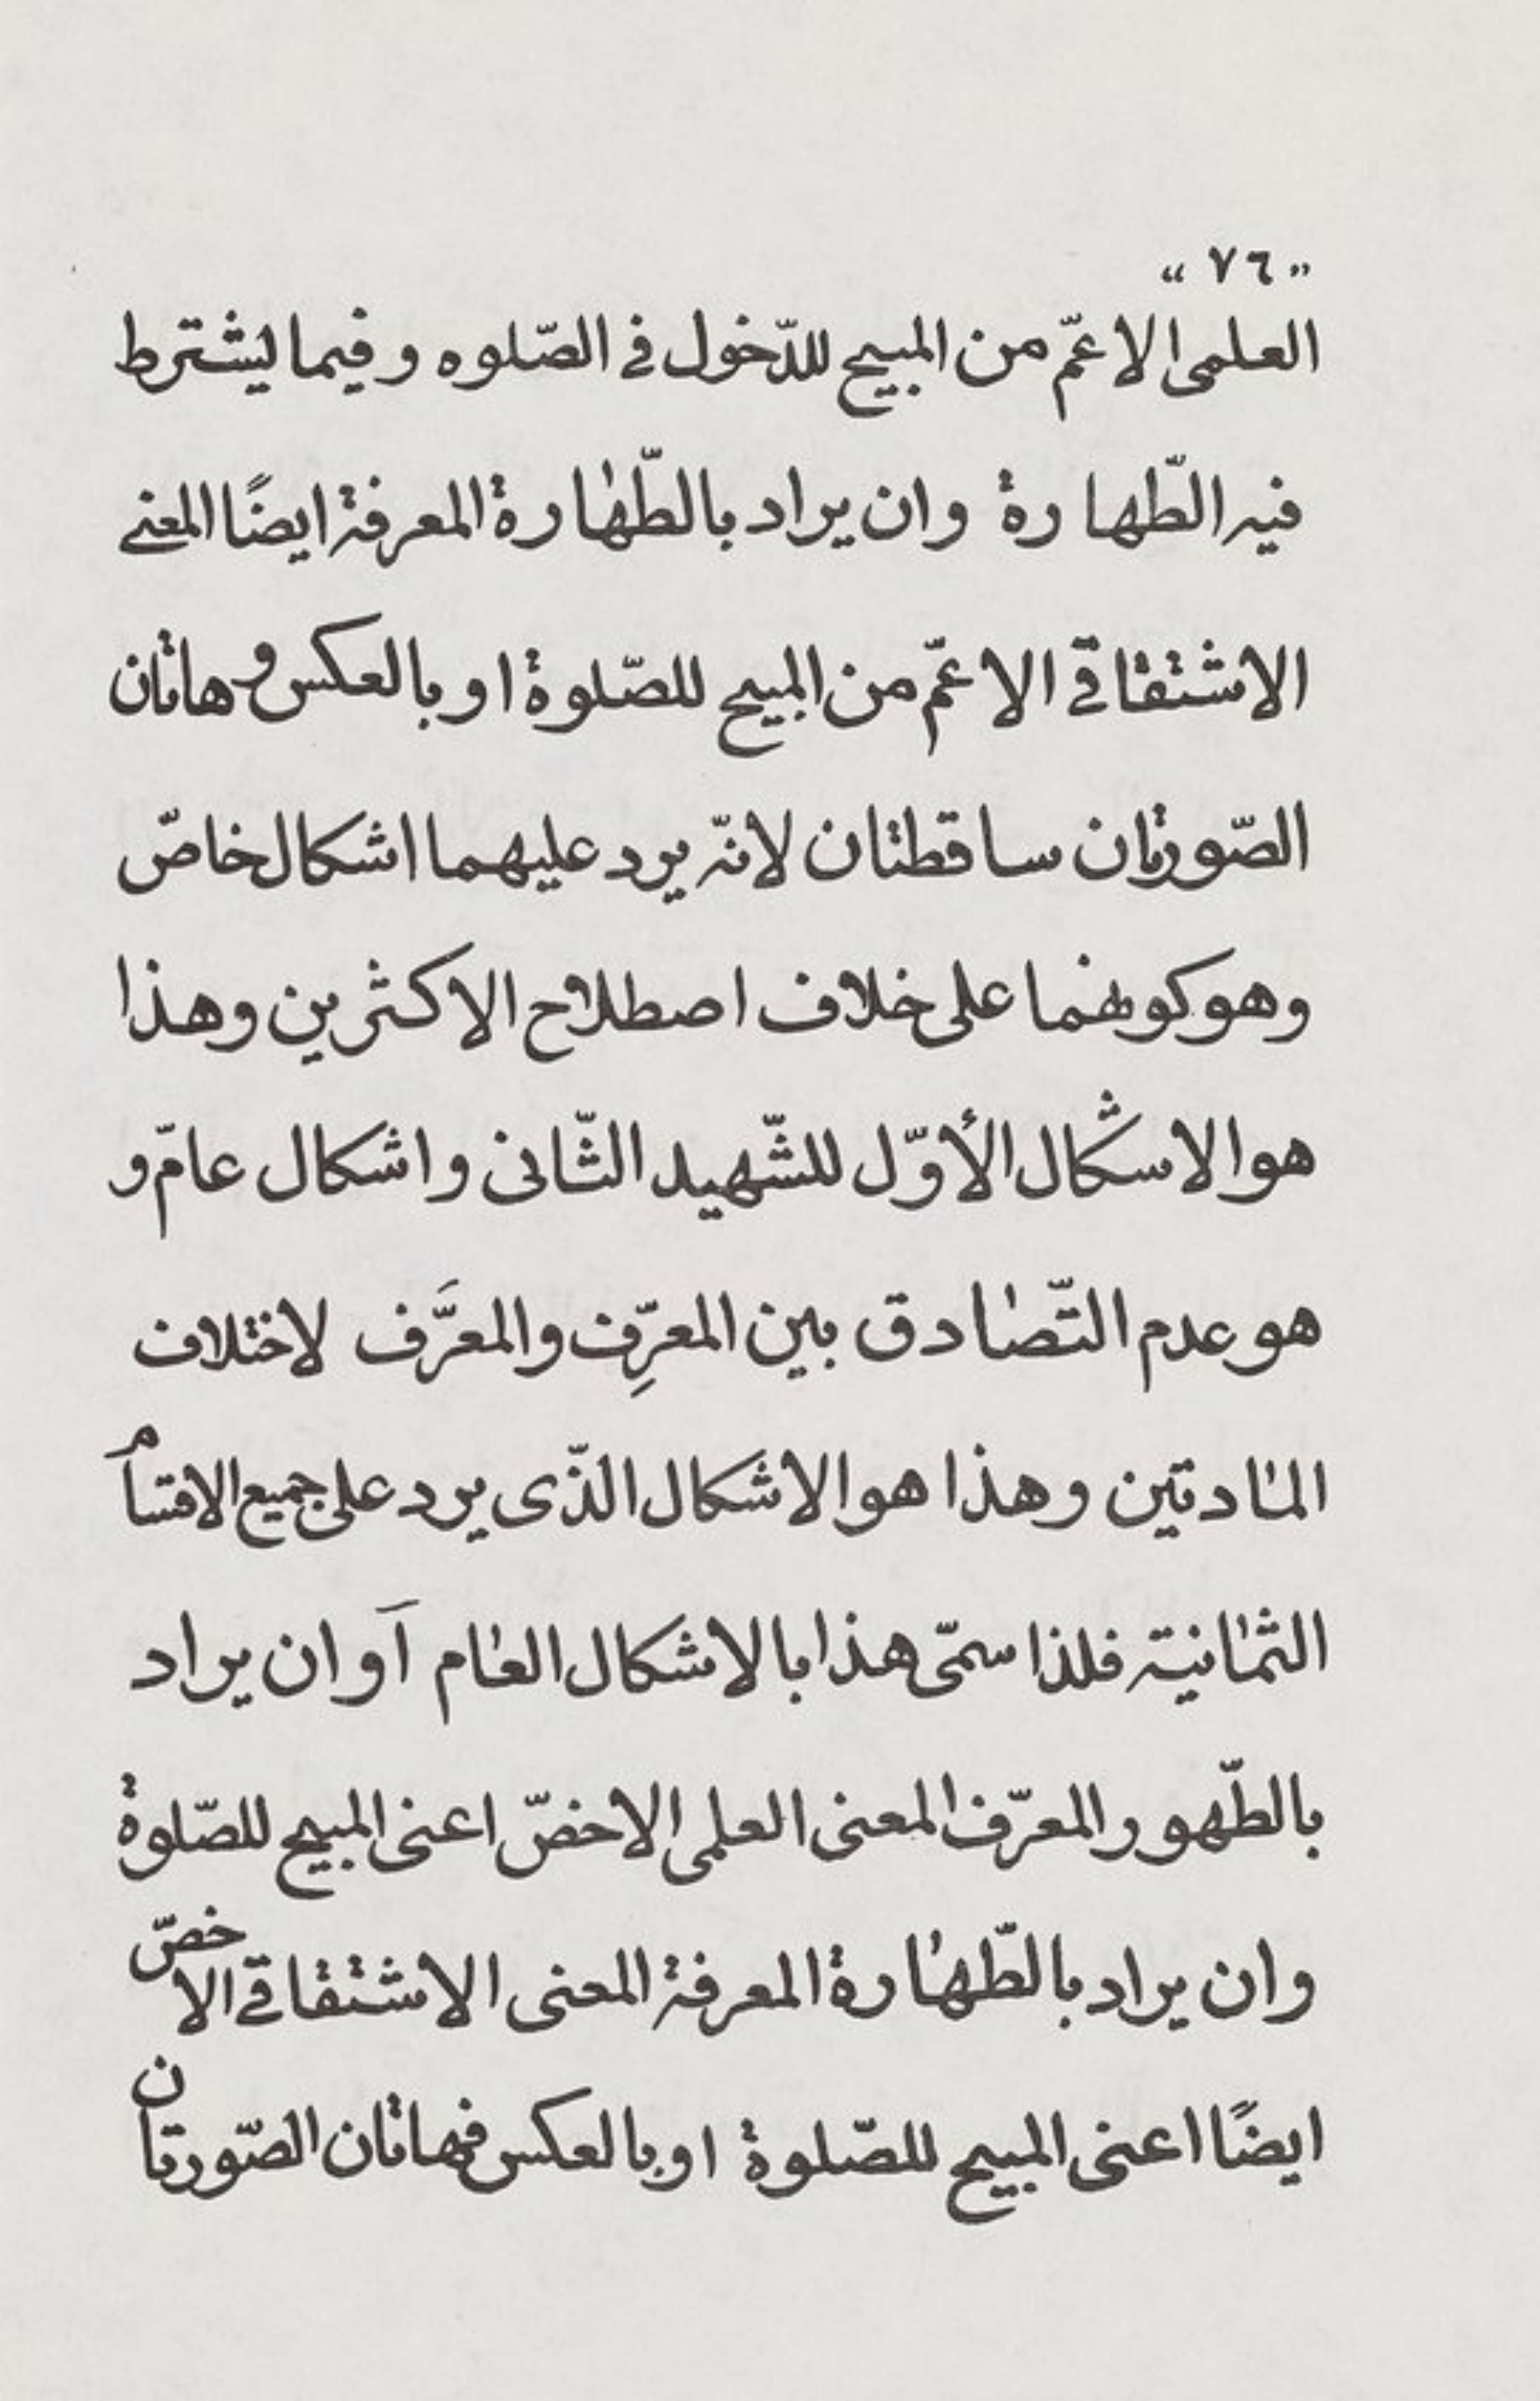 " ٧٦ "
العلمى الاعمّ من المبيح للدّخول فى الصّلوه و فيما يشترط
فيه الطّهارة وان يراد بالطّهارة المعرفة ايضًا المعنى
الاشتقاقى الاعمّ من المبيح للصّلوة او بالعكس و هاتان
الصّورتان ساقطتان لانّه يرد عليهما اشكال خاصّ
وهو كونهما على خلاف اصطلاح الاكثرين وهذا
هو الاشكال الأوّل للشّهيد الثّانى واشكال عامّ و
هو عدم التّصادق بين المعرِّف والمعرَّف لاختلاف
المادتين وهذا هو الاشكال الّذى يرد على جميع الاقسام
الثمانية فلذا سمّى هذا بالاشكال العام آو ان يراد
بالطّهور المعرّف المعنى العلمى الاخصّ اعنى المبيح للصّلوة
وان يراد بالطّهارة المعرفة المعنى الاشتقاقى الاخصّ
ايضًا اعنى المبيح للصّلوة او بالعكس فهاتان الصّورتان